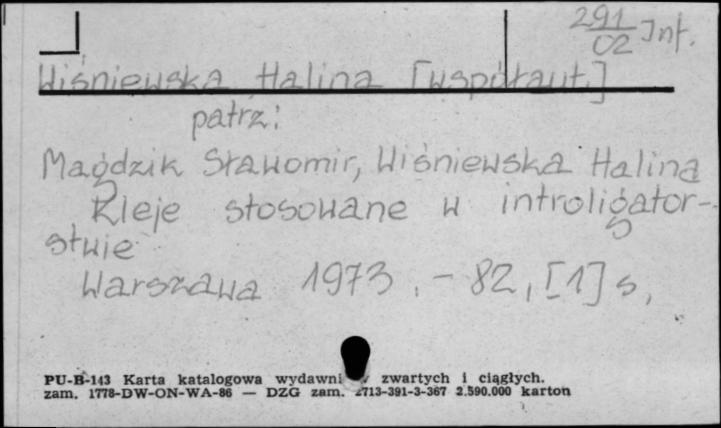 291
02 Inf.
Wiśniewska Halina [współaut.]
patrz:
Magdzik Sławomir, Wiśniewska Halina
Kleje stosowane w introligator-
stwie
Warszawa 1973. - 82, [1] s,
PU-B-143 Karta katalogowa wydawni zwartych i ciągłych.
zam. 1778-DW-ON-WA-86 — DZG zam. 2713-391-3-367 2.590.000 karton